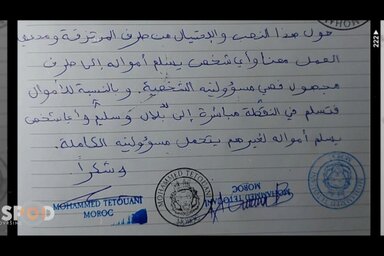 حول هذا النصب والاحتيال من طرف المرتزقة و
العمل معنا وأي شخص يسلم أمواله إلى طرف
مجهول فهي مسؤوليته الشخصية. وبالنسبة للأموال
فتسلم في النقطة مباشرة إلى بلال وسيم وأي شخص
يسلم أمواله لغيرهم يتحمل مسؤوليته الكاملة.
وشكراً
MOHAMMED TETOUANI
MOROC
MOHAMMED TETOUANI
MOHAMMED TETOUANI
MOROC